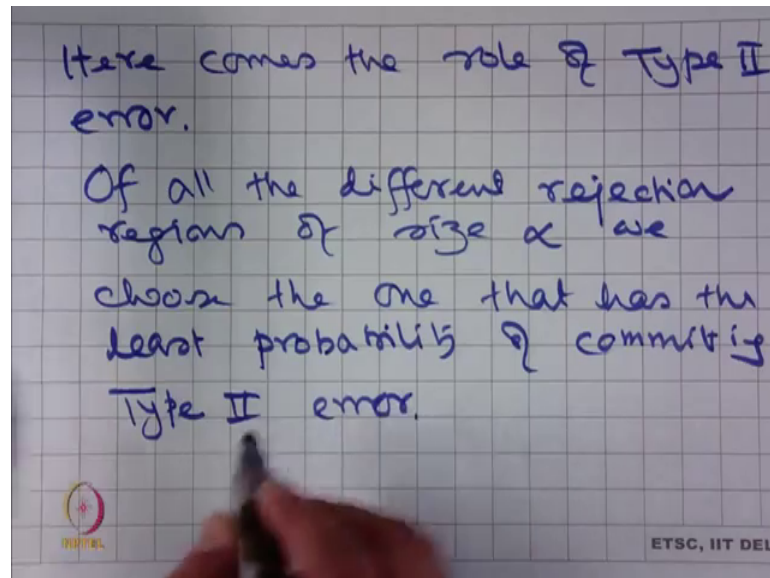 Here comes the role of Type II
error.
Of all the different rejection
regions of size α we
choose the one that has the
least probability of committing
Type II error.
ETSC, IIT DEL